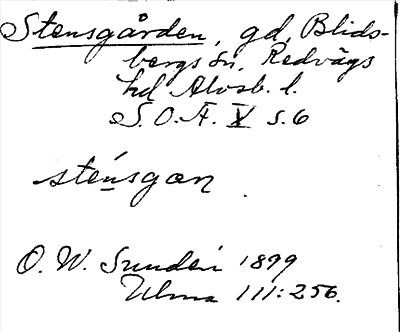 Stensgården, gd, Blids-
bergs sn, Redvägs
hd Älvsb. l.
S. O. Ä. V s. 6
sténsgan
O. W. Sundén 1899
Ulma 111:256.